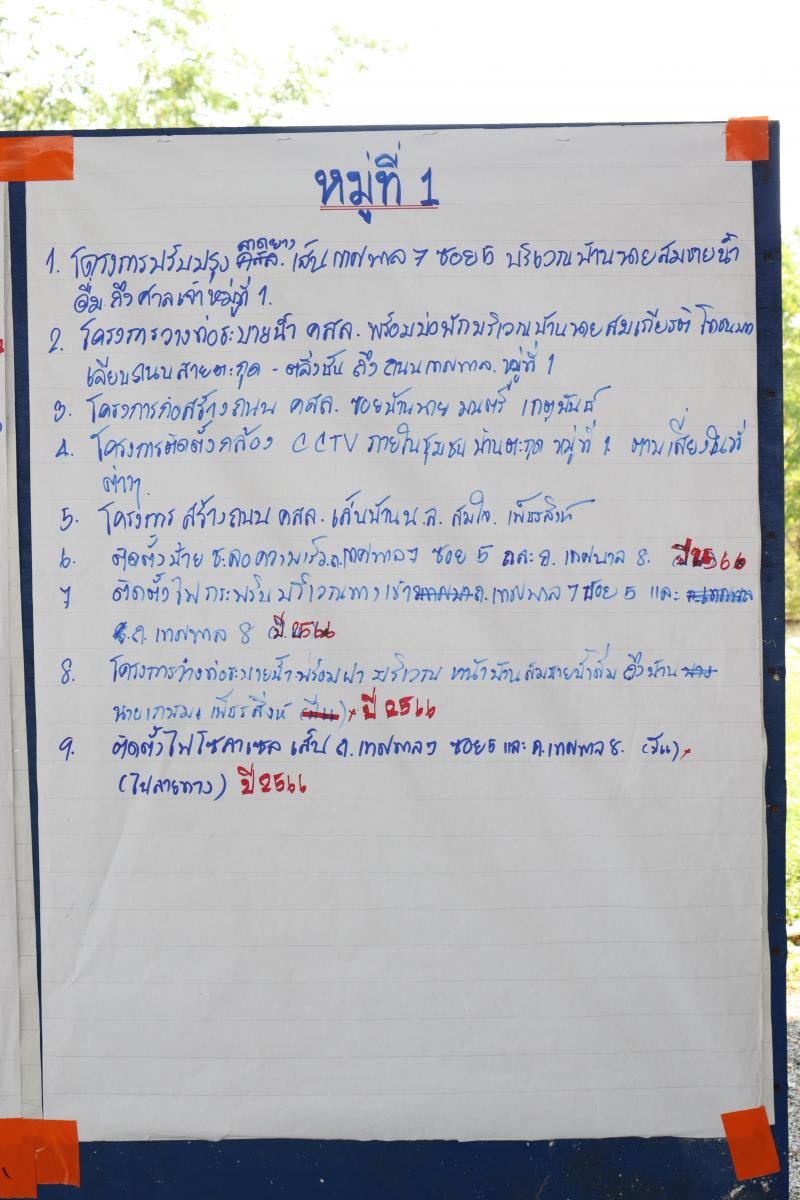 หมู่ที่ 1
ลาดยาง
1. โครงการปรับปรุง คสล. เส้นเทศบาล 7 ซอย 5 บริเวณบ้านนายสมชายน้ำ
ดื่ม ถึงศาลเจ้าหมู่ที่ 1.
2. โครงการวางท่อระบายน้ำ คสล. พร้อมบ่อพักบริเวณบ้านนายสมเกียรติ
เลียบถนนสายตะกุด - ตลิ่งชัน ถึงถนนเทศบาล. หมู่ที่ 1
3. โครงการก่อสร้างถนน คสล. ซอยบ้านนาย มนตรี เกตุพันธ์
4. โครงการติดตั้งกล้อง CCTV ภายในชุมชน บ้านตะกุด หมู่ที่ 1. ตามเสี่ยงในที่
ต่างๆ
5. โครงการ สร้างถนน คสล. เส้นบ้าน น.ส. สมใจ. เพ็ชรสิงห์
6. ติดตั้งป้าย ชะลอความเร็ว ถ.เทศบาล 7 ซอย 5 และ ถ. เทศบาล 8. ปี 2566
7 ติดตั้งไฟกระพริบ บริเวณทางเข้า ถ.เทศบาล 7 ซอย 5 และ
ถ. เทศบาล 8 ปี 2566
8. โครงการวางท่อระบายน้ำพร้อมฝา บริเวณ หน้าบ้านสมชายน้ำดื่ม ถึงบ้าน
นาย เพ็ชรสิงห์ ปี 2566
9. ติดตั้งไฟโซลาเซล เส้น ถ.เทศบาล 7 ซอย 5 และ ถ.เทศบาล 8.
(ไฟสายทาง) ปี 2566